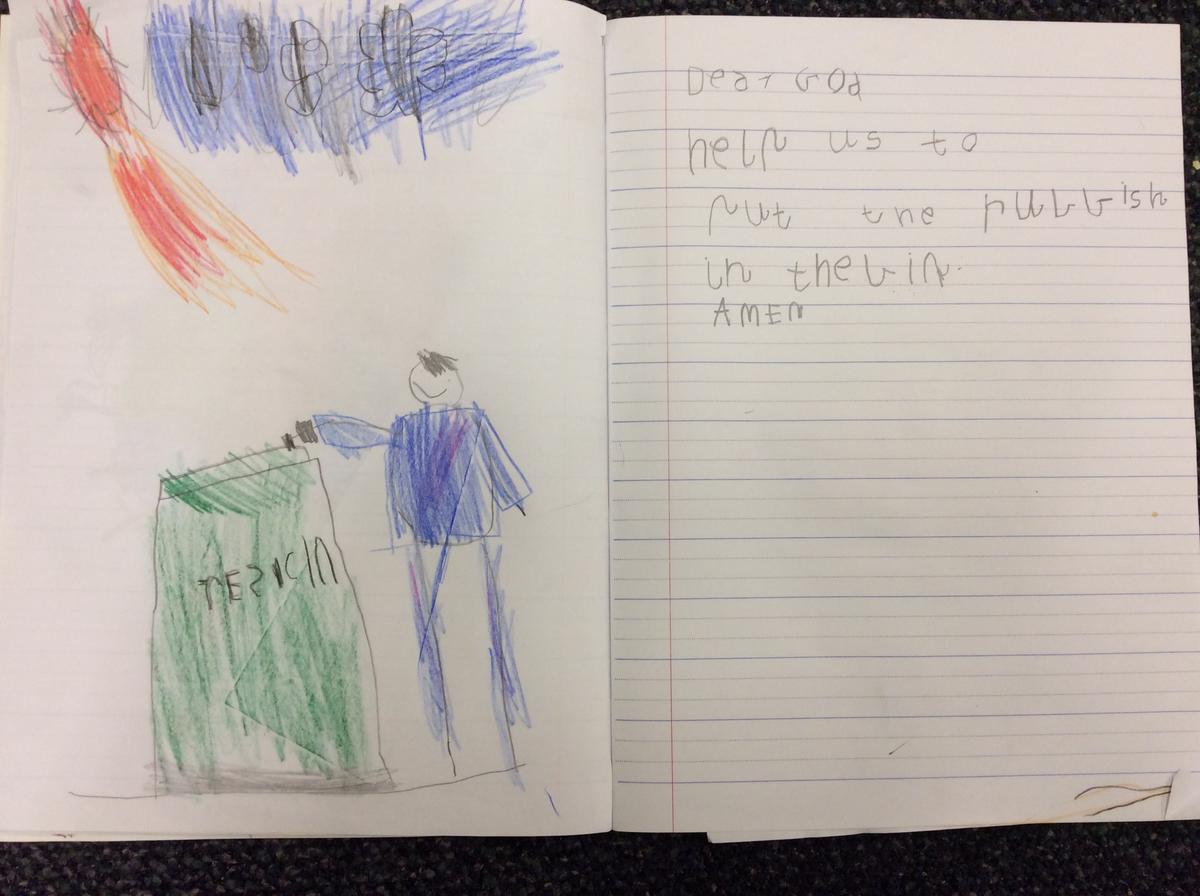 Dear God
help us to
put the rubbish
in the bin.
AMEN